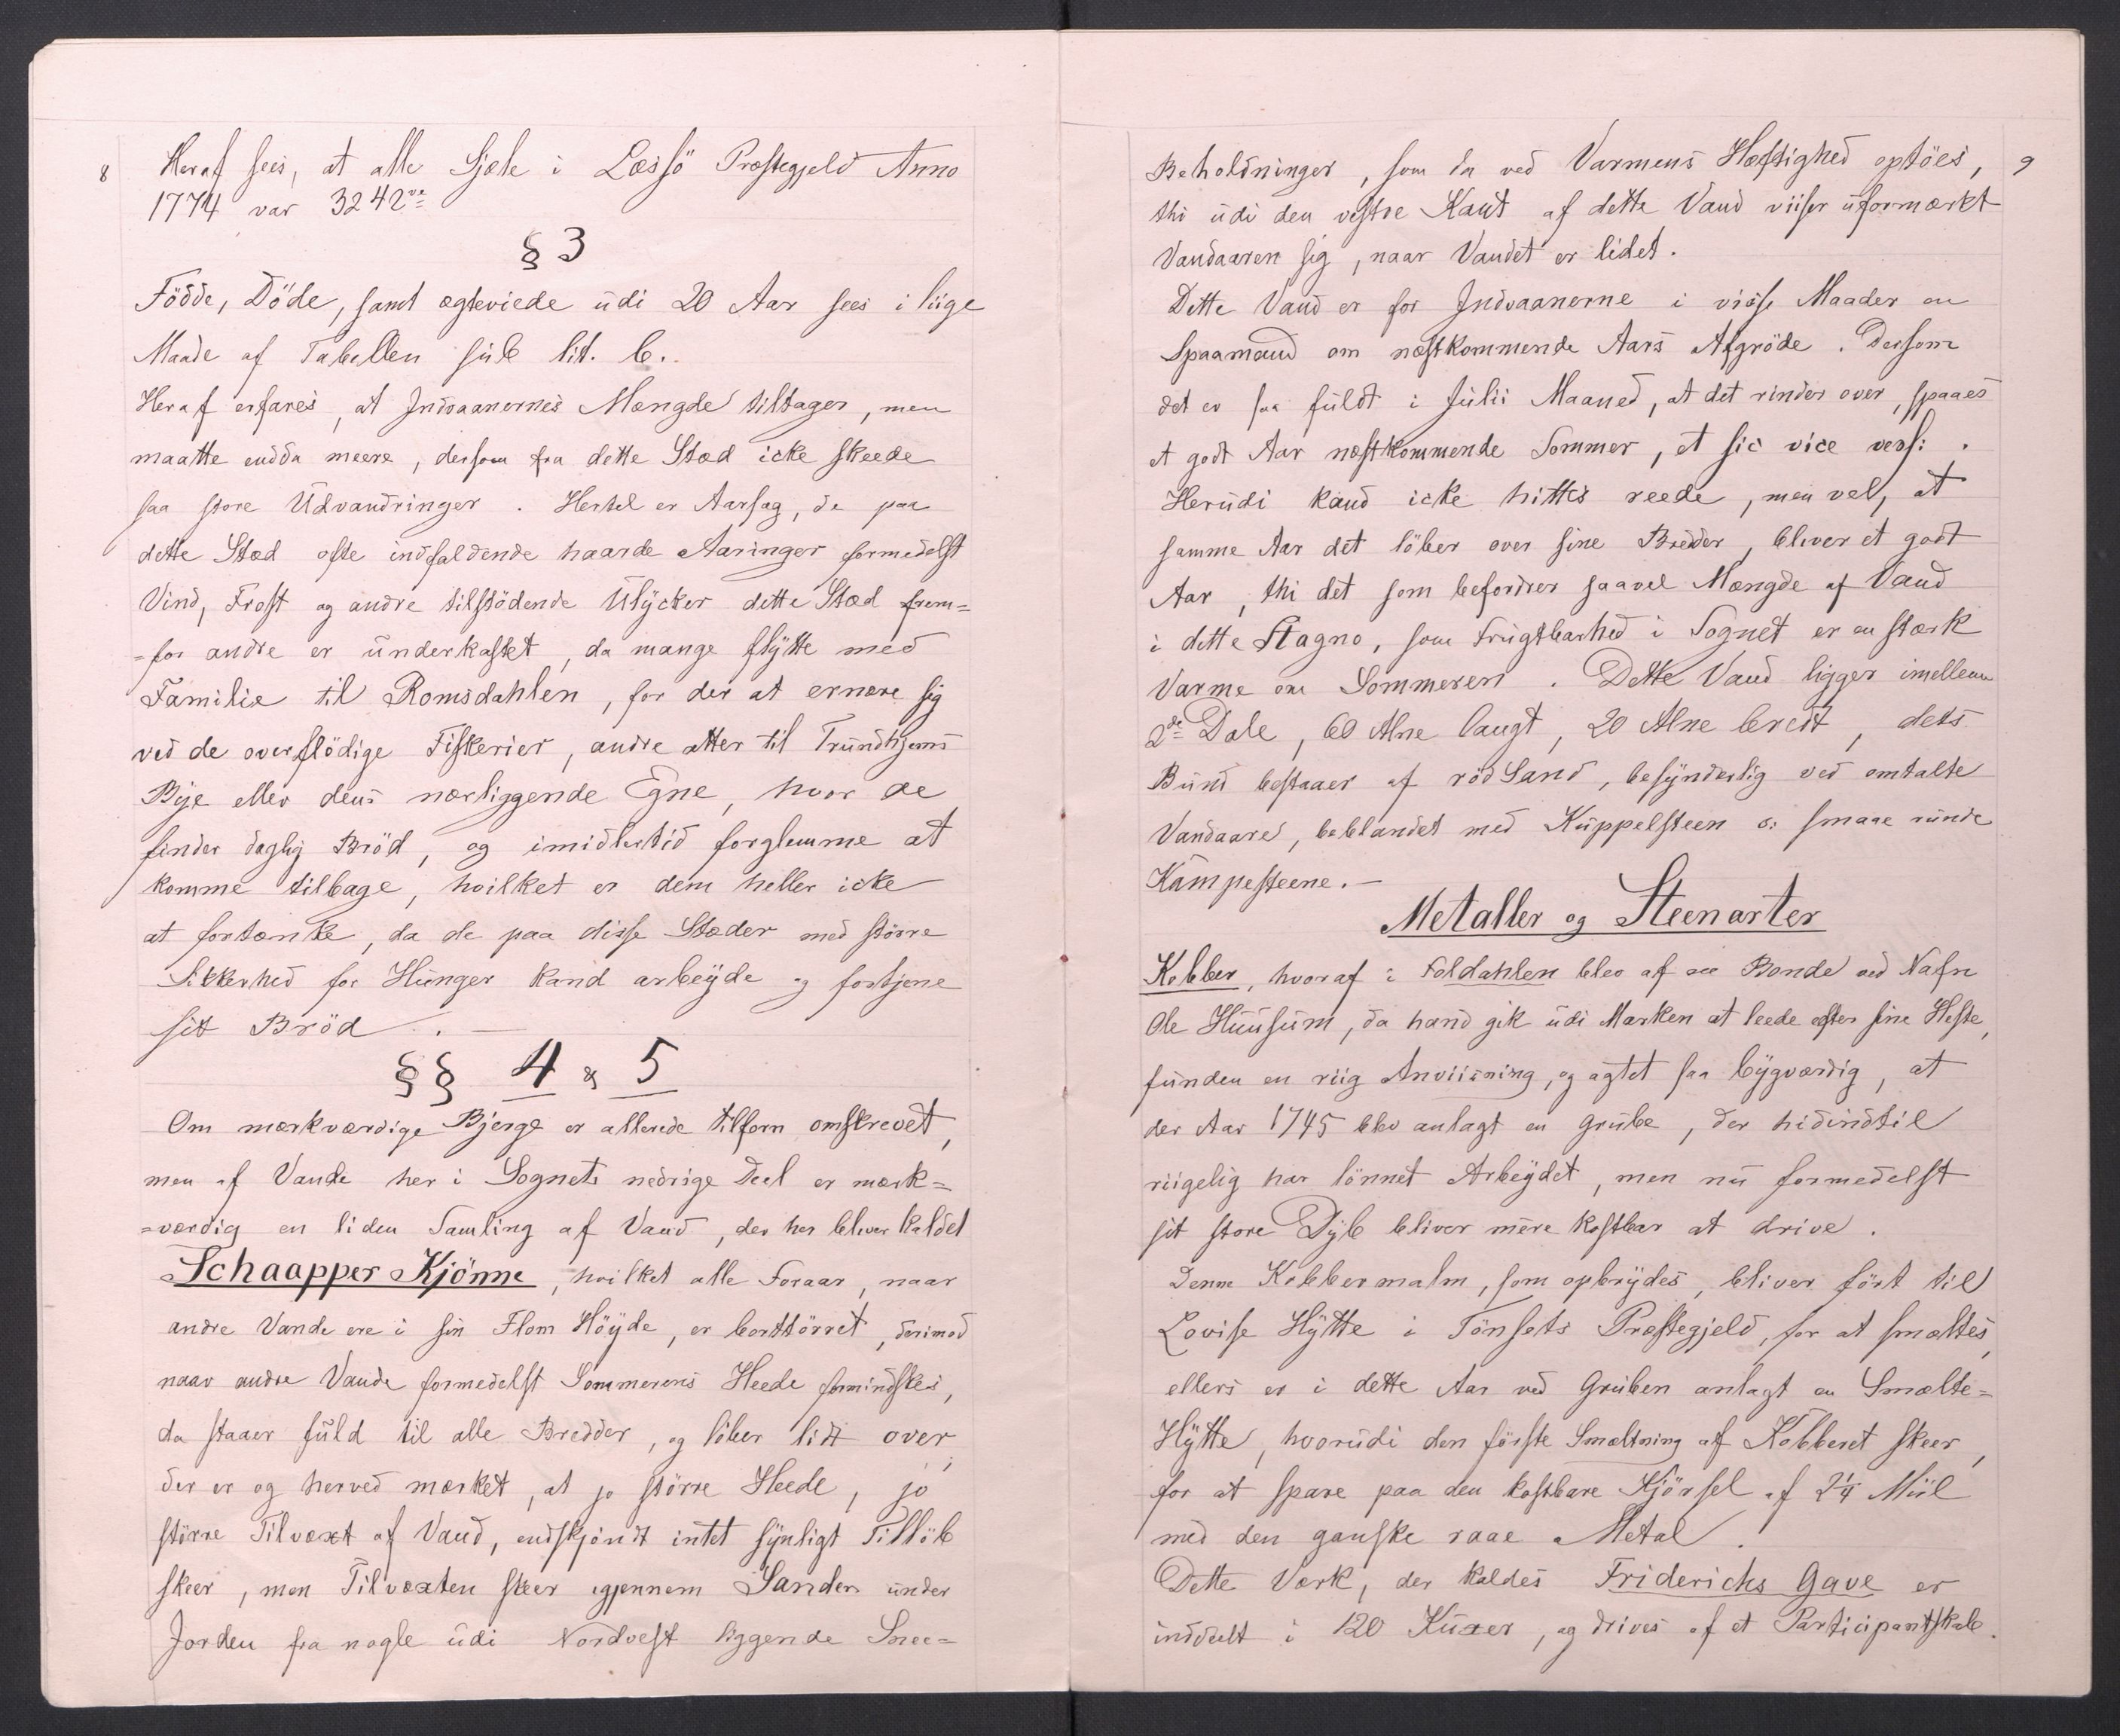 8
Heraf sees, at alle Sjæle i Læssö Præstegjeld Anno
1774 var 3242ve
§ 3
Födde, Döde, samt ægteviede udi 20 Aar sees i liige
Maade af Tabellen sub lit. b.
Heraf erfares, at Indvaanernes Mængde tiltager, men
maatte endda meere, dersom fra dette Stæd icke skeede
saa store Udvandringer. Hertel er Aarsag, de paa
dette Stæd ofte indfaldende haarde Aaringer formedelst
Vind, Frost og andre tilstödende Ulycker dette Stæd frem=
=for andre er underkastet, da mange flytte med
Familie til Romsdahlen, for der at ernære sig
ved de overflödige Fiskerier, andre atter til Trundhjems
Bye eller dens nærliggende Egne, hvor de
finder daglig Bröd, og imidlertid forglemme at
komme tilbage, hvilket er dem heller icke
at fortænke, da de paa disse Stæder med större
Sikkerhed for Hunger kand arbeyde og fortjene
sit Bröd. —
§§ 4 & 5
Om mærkværdige Bjerge er allerede tilforn omskrevet,
men af Vande her i Sognets nedrige Deel er mærk=
=værdig en liden Samling af Vand, der her bliver kaldet
Schaapper Kjönne, hvilket alle Foraar, naar
andre Vande ere i sin Flom Höyde, er borttörret, derimod
naar andre Vande formedelst Sommerens Heede formindskes,
da staaer fuld til alle Bredder, og löber lidt over;
der er og herved mærket, at jo större Heede, jo
större Tilvæxt af Vand, endskjöndt intet synligt Tillöb
skeer, men Tilvæxten skeer igjennem Sanden under
Jorden fra nogle udi Nordvest liggende Snee=
9
Beholdninger, som da ved Varmens Hæftighed optöes,
thi udi den vestre Kant af dette Vand viiser uformærkt
Vandaaren sig, naar Vandet er lidet.
Dette Vand er for Indvaanerne i visse Maader en
Spaamand om næstkommende Aars Afgröde. Dersom
det er saa fuldt i Julii Maaned, at det rinder over, spaaes
et godt Aar næstkommende Sommer, et sic vice vers: .
Herudi kand icke hittes reede, men vel, at
samme Aar det löber over sine Bredder, bliver et godt
Aar, thi det som befordrer saavel Mængde af Vand
i dette Stagno, som Frugtbarhed i Sognet er en stærk
Varme om Sommeren. Dette Vand ligger imellem
2de Dale, 60 Alne langt, 20 Alne bredt, dets
Bund bestaaer af röd Sand, besynderlig ved omtalte
Vandaare, beblandet med Kuppelsteen ɔ: smaae runde
Kampesteene. —
Metaller og Steenarter
Kobber, hvoraf i Foldahlen blev af en Bonde ved Nafn
Ole Huusum, da hand gik udi Marken at leede efter sine Heste,
funden en riig Anviisning, og agtet saa bygværdig, at
der Aar 1745 blev anlagt en Grube, der hidindtil
riigelig har lönnet Arbeydet, men nu formedelst
sit store Dyb bliver mere kostbar at drive.
Denne Kobbermalm, som opbrydes, bliver fört til
Lovise Hytte i Tönsets Præstegjeld, for at smæltes,
ellers er i dette Aar ved Gruben anlagt en Smælte=
Hytte, hvorudi den förste Smæltning af Kobberet skeer,
for at spare paa den kostbare Kjörsel af 2¼ Miil
med den ganske raae Metal.
Dette Værk, der kaldes Friderichs Gave er
inddeelt i 120 Kuxer, og drives af et Participantskab.